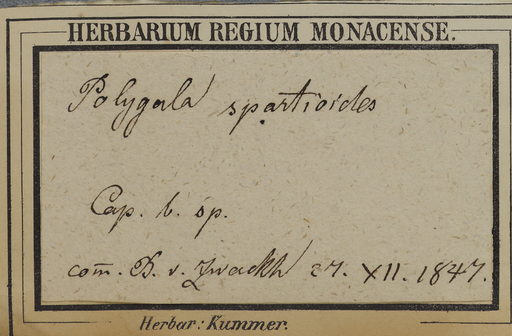 HERBARIUM REGIUM MONACENSE.
Polygala spartioides
Cap. b. sp.
com̄. B. v. Zwackh 27. XII. 1847.
Herbar: Kummer.